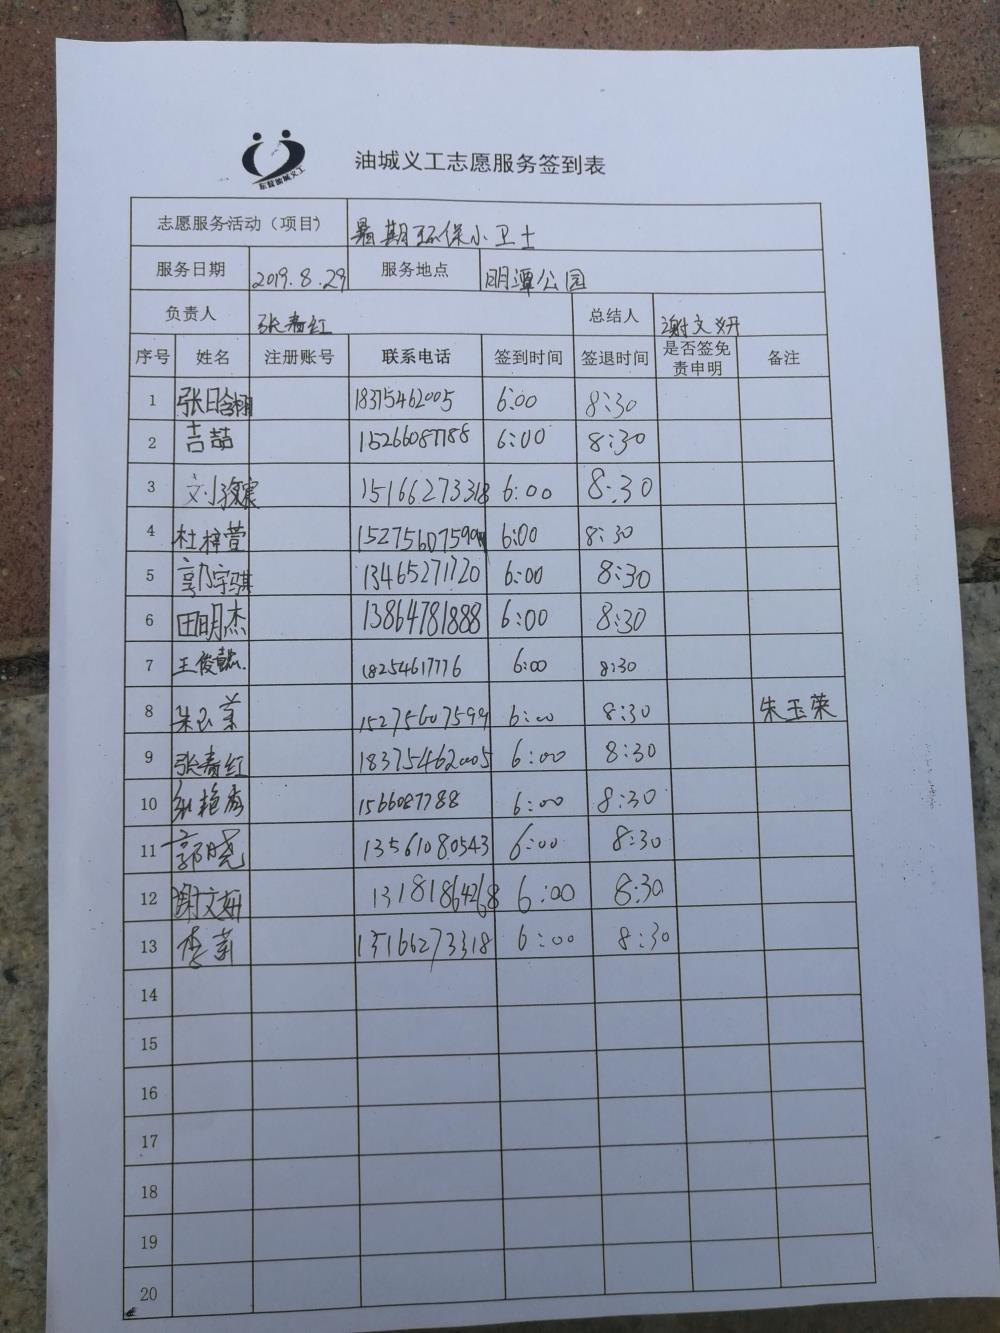 东营油城义工
油城义工志愿服务签到表
志愿服务活动（项目） 暑期环保小卫士
服务日期 2019.8.29 服务地点 明潭公园
负责人 张春红 总结人 谢文妍
序号 姓名 注册账号 联系电话 签到时间 签退时间 是否签免责申明 备注
1 18375462005 6:00 8:30
2 吉喆 15266087788 6:00 8:30
3 15166273318 6:00 8:30
4 杜梓萱 6:00 8:30
5 郭宇骐 13465271720 6:00 8:30
6 田明杰 13864781888 6:00 8:30
7 王俊懿 18254617776 6:00 8:30
8 朱玉荣 15275607599 6:00 8:30 朱玉荣
9 张春红 18375462005 6:00 8:30
10 1566087788 6:00 8:30
11 郭晓 13561080543 6:00 8:30
12 谢文妍 13181864268 6:00 8:30
13 李莉 15166273318 6:00 8:30
14
15
16
17
18
19
20